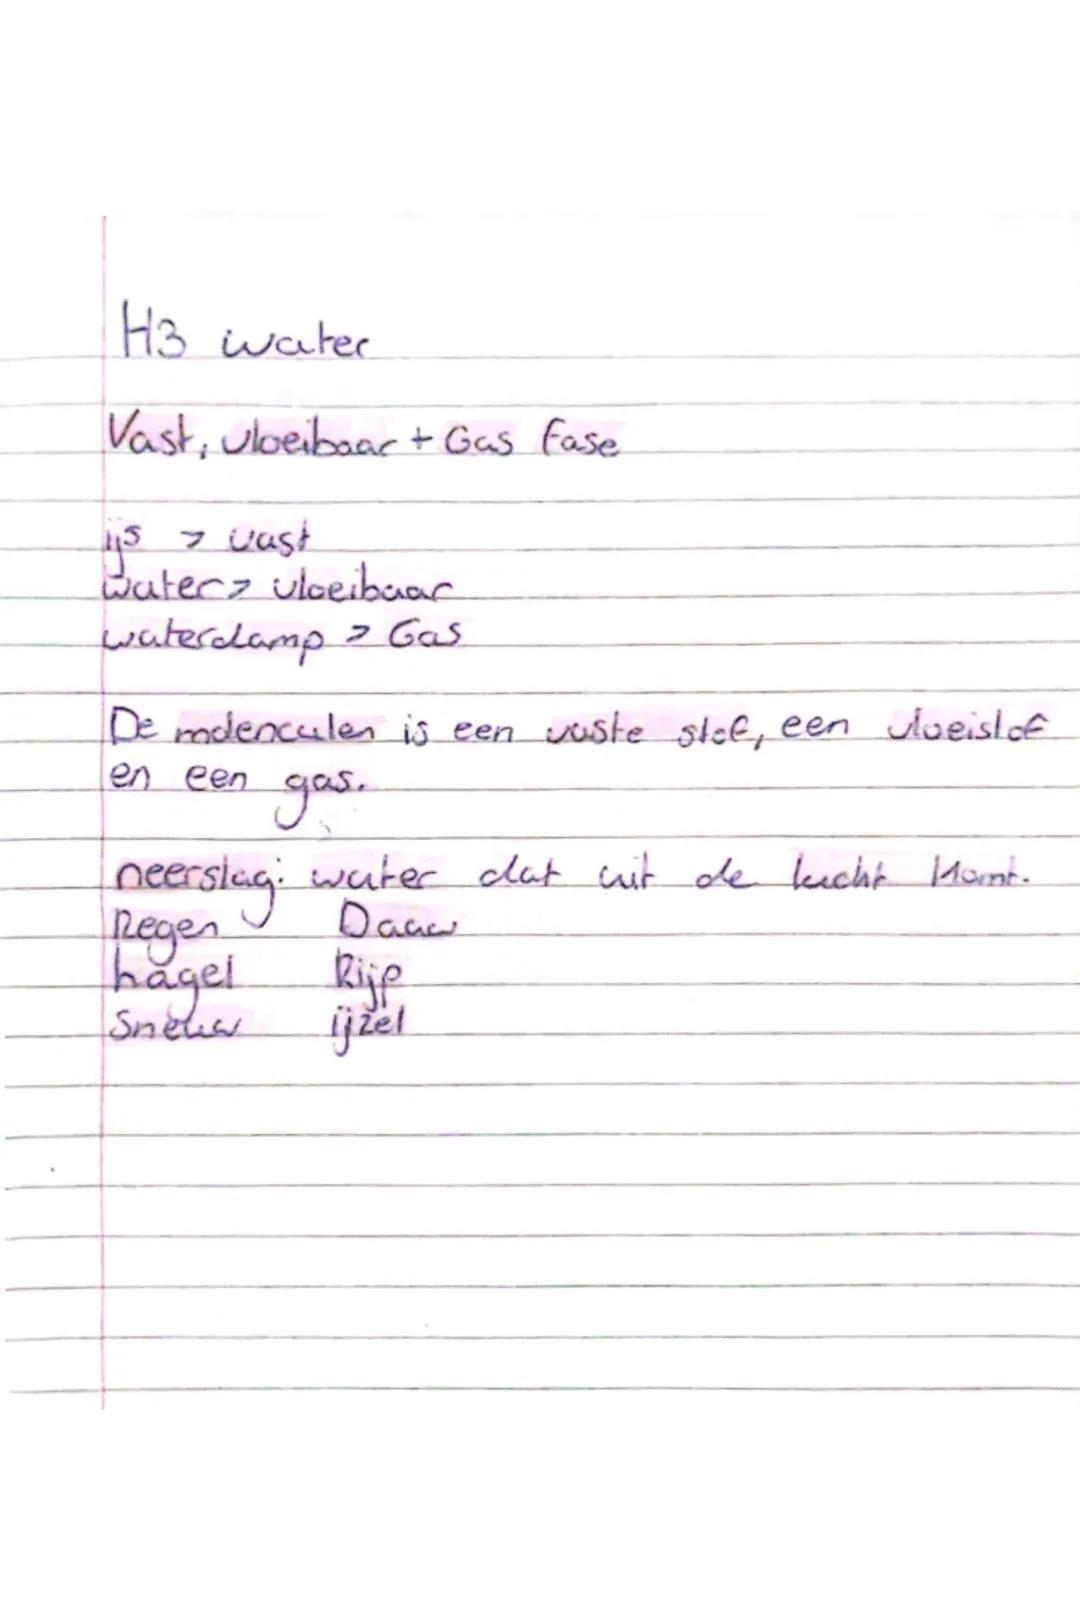 H3 water
Vast, vloeibaar + Gas fase
ijs > vast
water > vloeibaar
waterdamp > Gas
De molenculen is een vaste stof, een vloeistof
en een gas.
neerslag: water dat uit de lucht komt.
Regen Dauw
hagel Rijp
Sneeuw ijzel